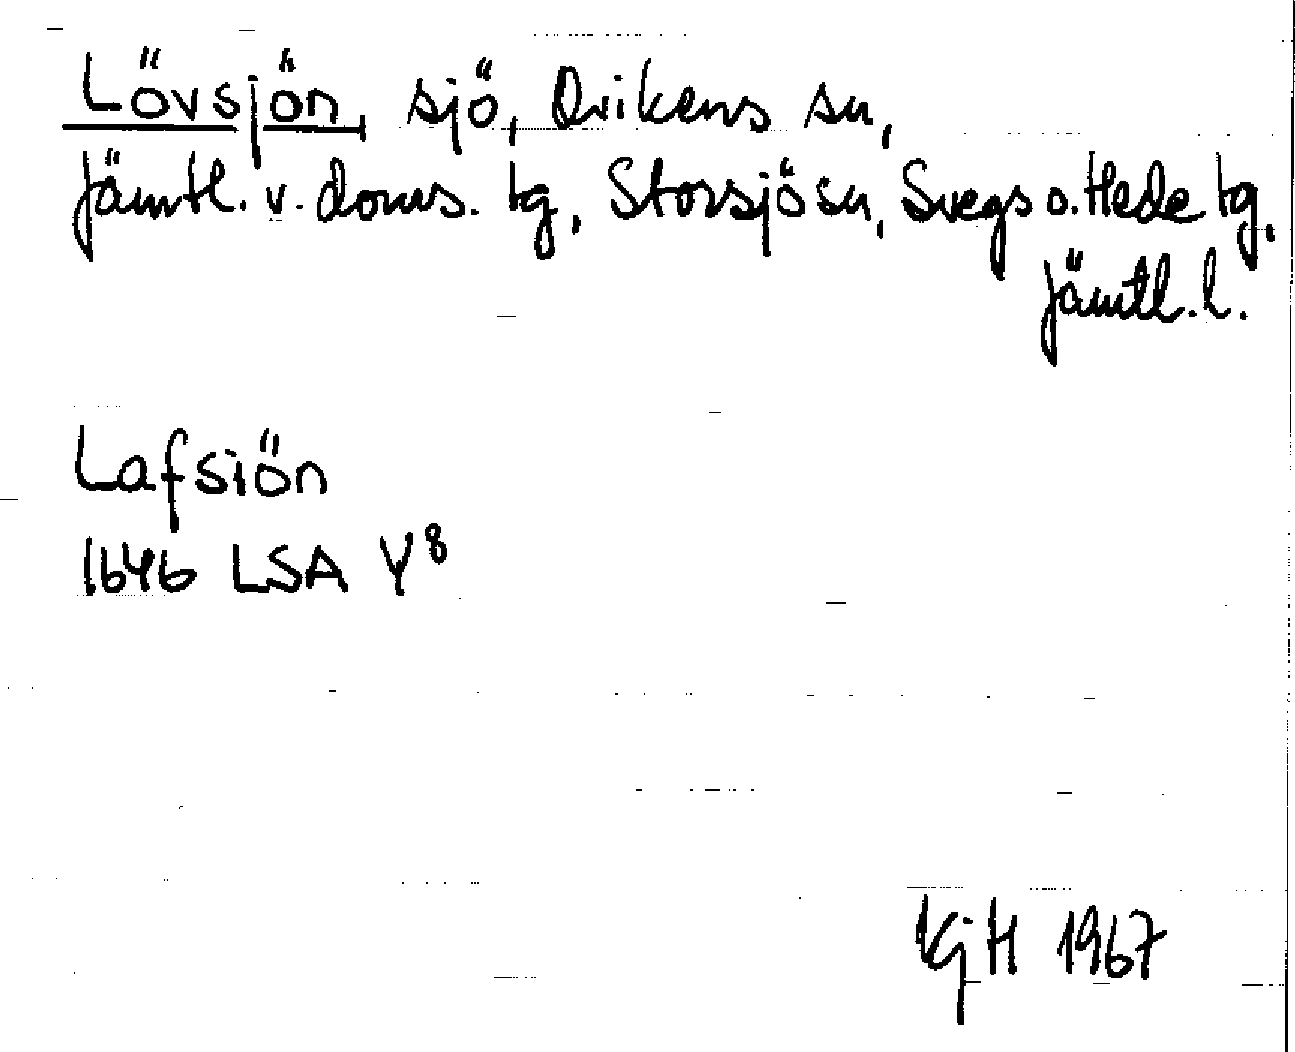 Lövsjön, sjö, Ovikens sn,
Jämtl. v. doms. tg, Storsjö sn, Svegs o. Hede tg,
Jämtl. l.
Lafsiön
1646 LSA Y8
KjH 1967